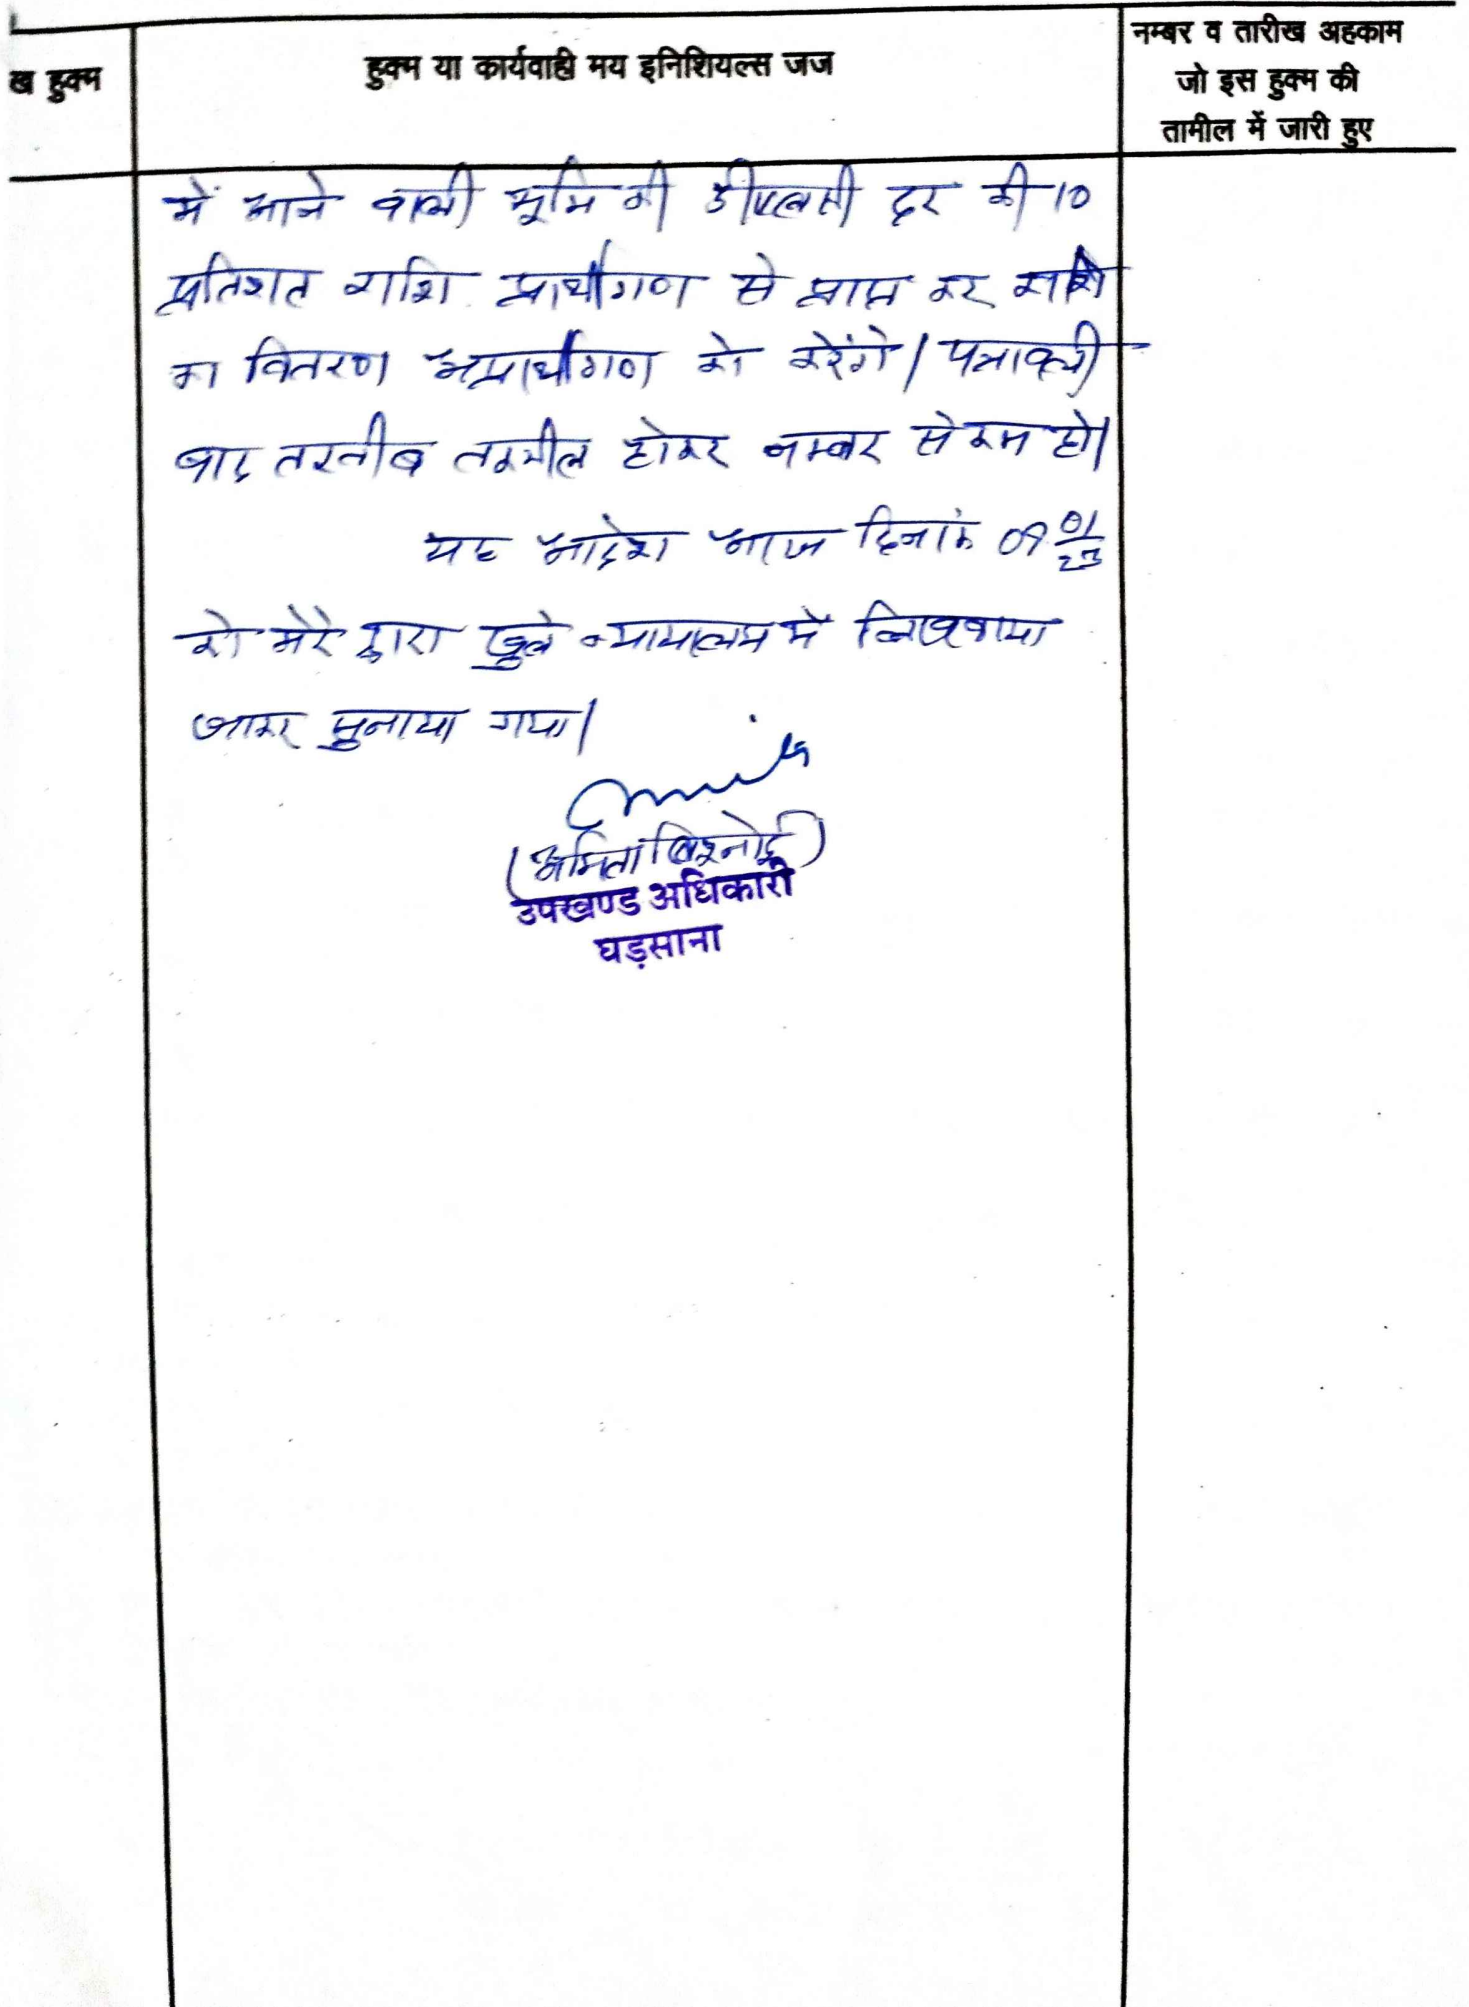 ख हुक्म
हुक्म या कार्यवाही मय इनिशियल्स जज
नम्बर व तारीख अहकाम
जो इस हुक्म की
तामील में जारी हुए
में आने वाली भूमि की डीएलसी दर की 10
प्रतिशत राशि प्रार्थीगण से प्राप्त कर राशि
का वितरण अप्रार्थीगण को करेंगे। पत्रावली
बाद तरतीब तकमील होकर नम्बर से कम हो।
यह आदेश आज दिनांक 09 01/23
को मेरे द्वारा खुले न्यायालय में लिखवाया
जाकर सुनाया गया।
(अमिता बिश्नोई)
उपखण्ड अधिकारी
घड़साना